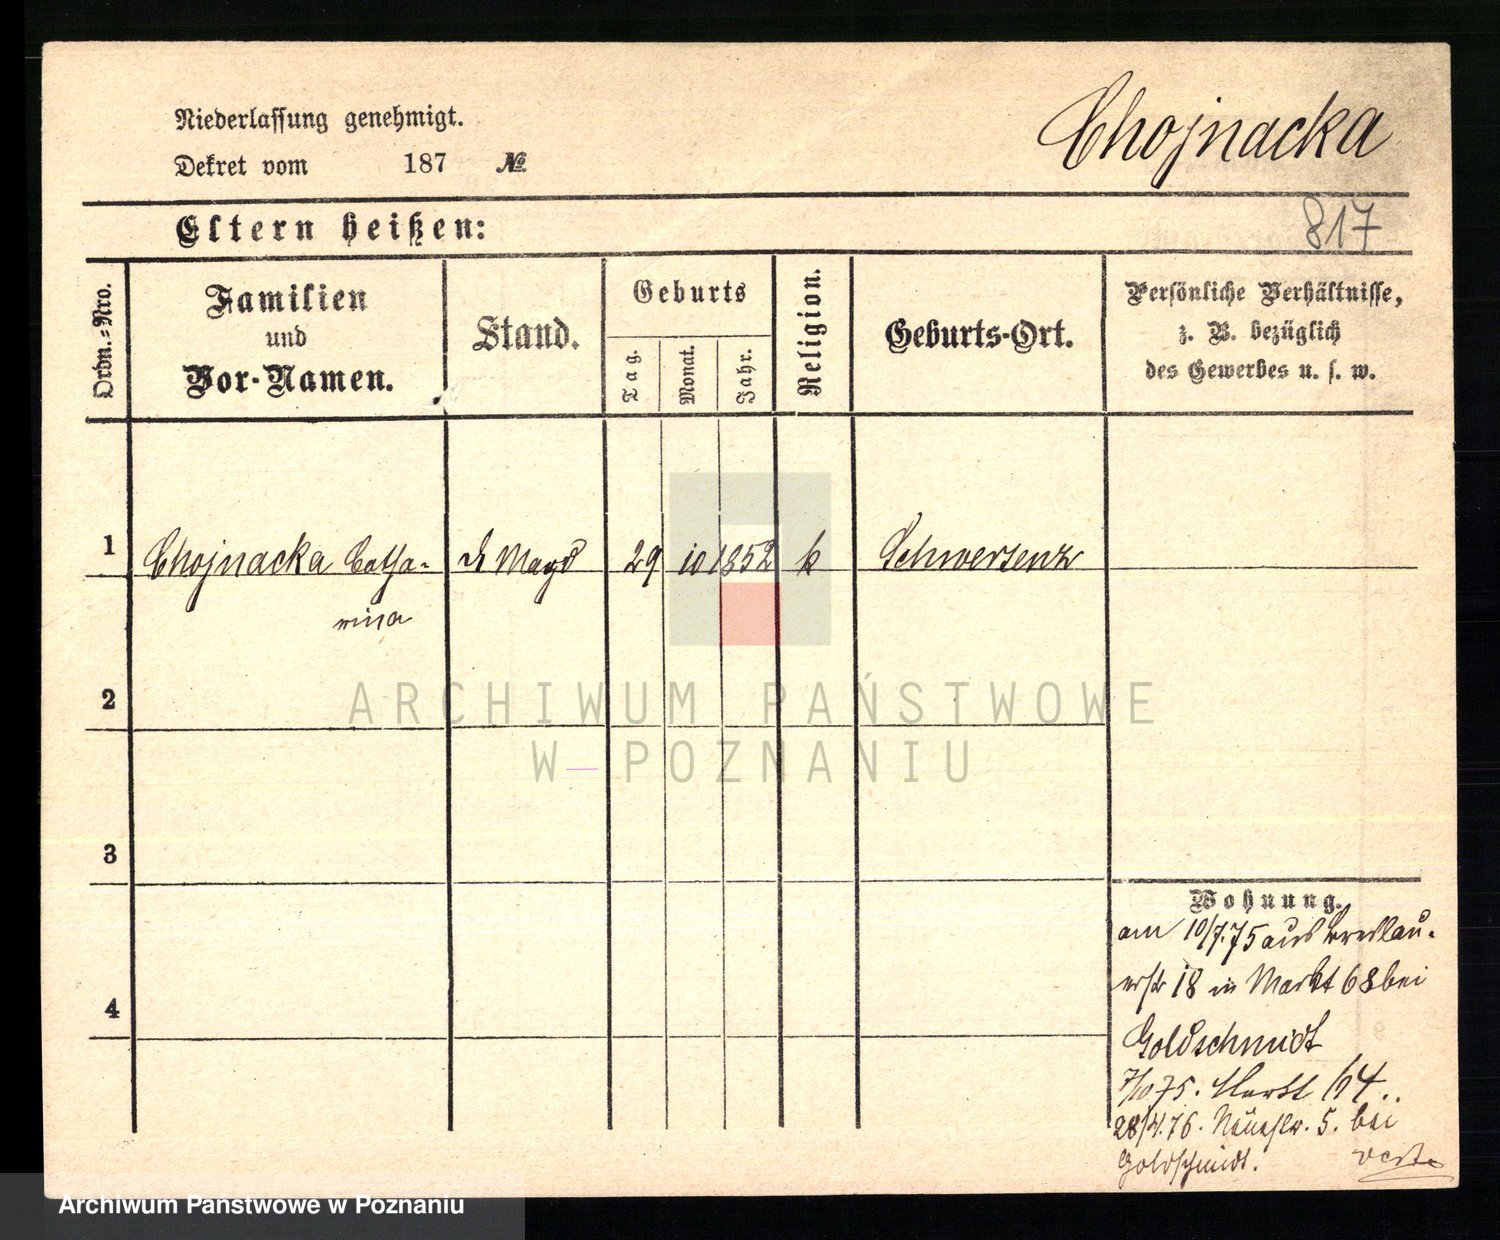 Niederlassung genehmigt.
Dekret vom 187 №
Chojnacka
817
Eltern heißen:
Ordn.-Nro.
Familien
und
Vor-Namen.
Stand.
Geburts
Tag.
Monat.
Jahr.
Religion.
Geburts-Ort.
Persönliche Verhältnisse,
z. B. bezüglich
des Gewerbes u. s. w.
1 Chojnacka Catha- d Magd 29 10 1852 k Schwersenz
rina
2
ARCHIWUM PAŃSTWOWE
W POZNANIU
3
4
Wohnung.
am 10/7.75 aus Breslau-
erstr 18 in Markt 68 bei
Goldschmidt
7/10 75. Markt 64..
28/4.76. Neuestr. 5. bei
Goldschmidt.
Archiwum Państwowe w Poznaniu